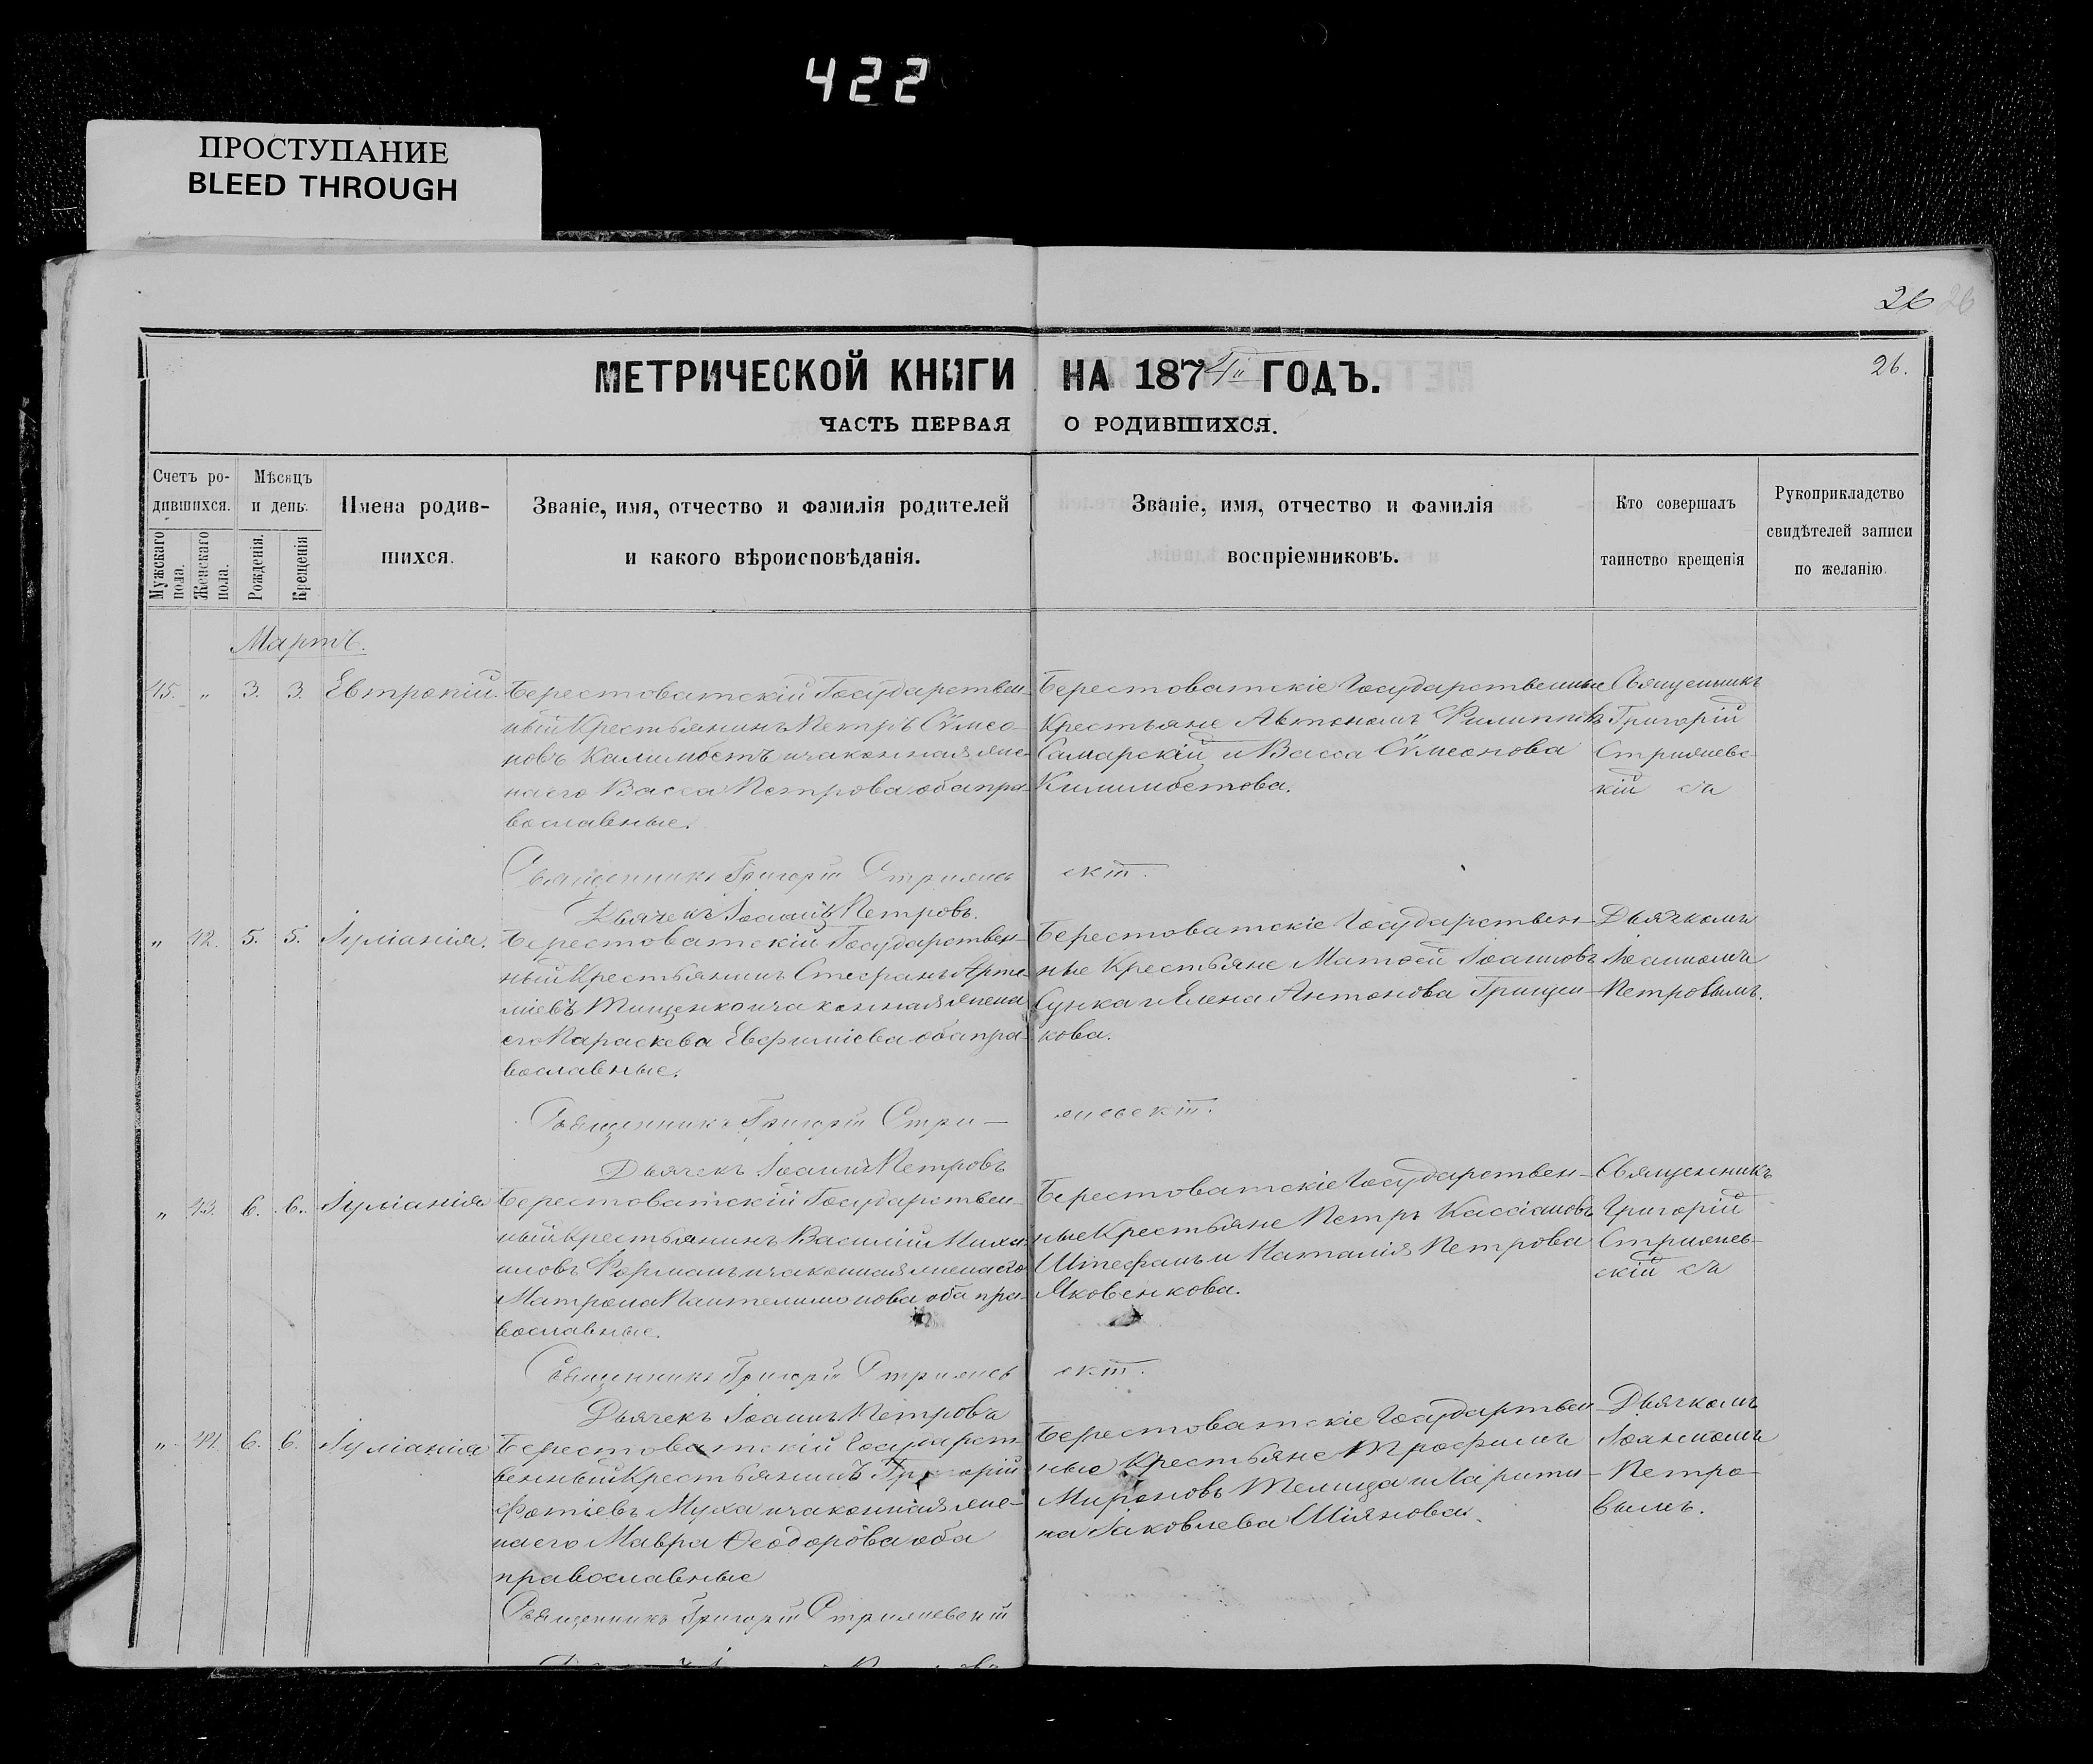 422
ПРОСТУПАНИЕ
BLEED THROUGH
26 26
МЕТРИЧЕСКОЙ КНИГИ НА 1874й ГОДЪ.
26.
ЧАСТЬ ПЕРВАЯ О РОДИВШИХСЯ.
Счетъ ро-
дившихся.
Мужскаго пола.
Женскаго пола.
Мѣсяцъ
и день.
Рожденія.
Крещенія
Имена родив-
шихся.
Званіе, имя, отчество и фамилія родителей
и какого вѣроисповѣданія.
Званіе, имя, отчество и фамилія
воспріемниковъ.
Кто совершалъ
таинство крещенія
Рукоприкладство
свидѣтелей записи
по желанію.
Мартъ.
45. „ 3. 3. Евтропій.
Берестоватскій Государствен-
ный Крестьянинъ Петръ Сѵмео-
новъ и законная же-
на его Васса Петрова оба пра-
вославные.
Берестоватскіе Государственные
Крестьяне Автономъ Филипповъ
Самарскій и Васса Сѵмеонова
Килимбетова.
Священникъ
Григорій
скій
Священникъ Григорій
Дьячекъ Іоаннъ Петровъ.
„ 42. 5. 5. Іуліанія.
Берестоватскій Государствен-
ный Крестьянинъ Стефанъ Арте-
міевъ Тищенко и законная жена
его Параскева Евфиміева оба пра-
вославные.
Берестоватскіе Государствен-
ные Крестьяне Матѳей Іоанновъ
Сунка и Елена Антонова Грищен-
кова.
Дьячкомъ
Іоанномъ
Петровымъ.
Священникъ Григорій
Дьячекъ Іоаннъ Петровъ
„ 43. 6. 6. Іуліанія
Берестоватскій Государствен-
ный Крестьянинъ Василій Михаи-
ловъ Форманъ и законная жена его
Матрона Пантелимонова оба пра-
вославные.
Берестоватскіе Государствен-
ные Крестьяне Петръ Кассіановъ
Штефанъ и Наталія Петрова
Яковенкова.
Священникъ
Григорій
скій
Священникъ Григорій
Дьячекъ Іоаннъ Петровъ
„ 44. 6. 6. Іуліанія
Берестоватскій Государст-
венный Крестьянинъ Григорій
Фотіевъ Муха и законная же-
на его Мавра Ѳеодорова оба
православные
Берестоватскіе Государствен-
ные Крестьяне Трофимъ
Мироновъ Телица и Харити-
на Іаковлева Шіянова.
Дьячкомъ
Іоанномъ
Петро-
вымъ.
Священникъ Григорій